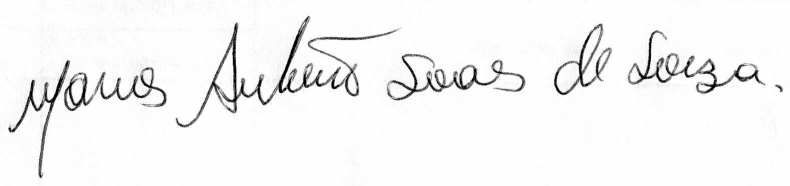 Marcos Antonio Soares de Souza.